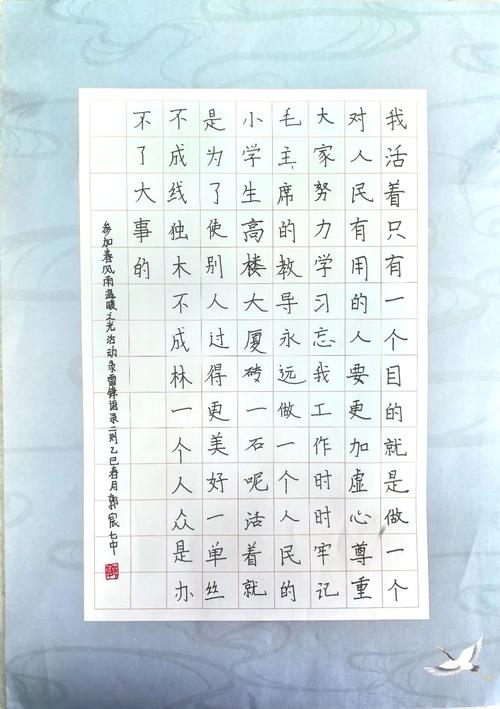 我活着只有一个目的就是做一个
对人民有用的人要更加虚心尊重
大家努力学习忘我工作时时牢记
毛主席的教导永远做一个人民的
小学生高楼大厦砖一石呢活着就
是为了使别人过得更美好一单丝
不成线独木不成林一个人众是办
不了大事的
参加春风雨温暖之光活动录雷锋语录二则乙巳春月郭宸七中